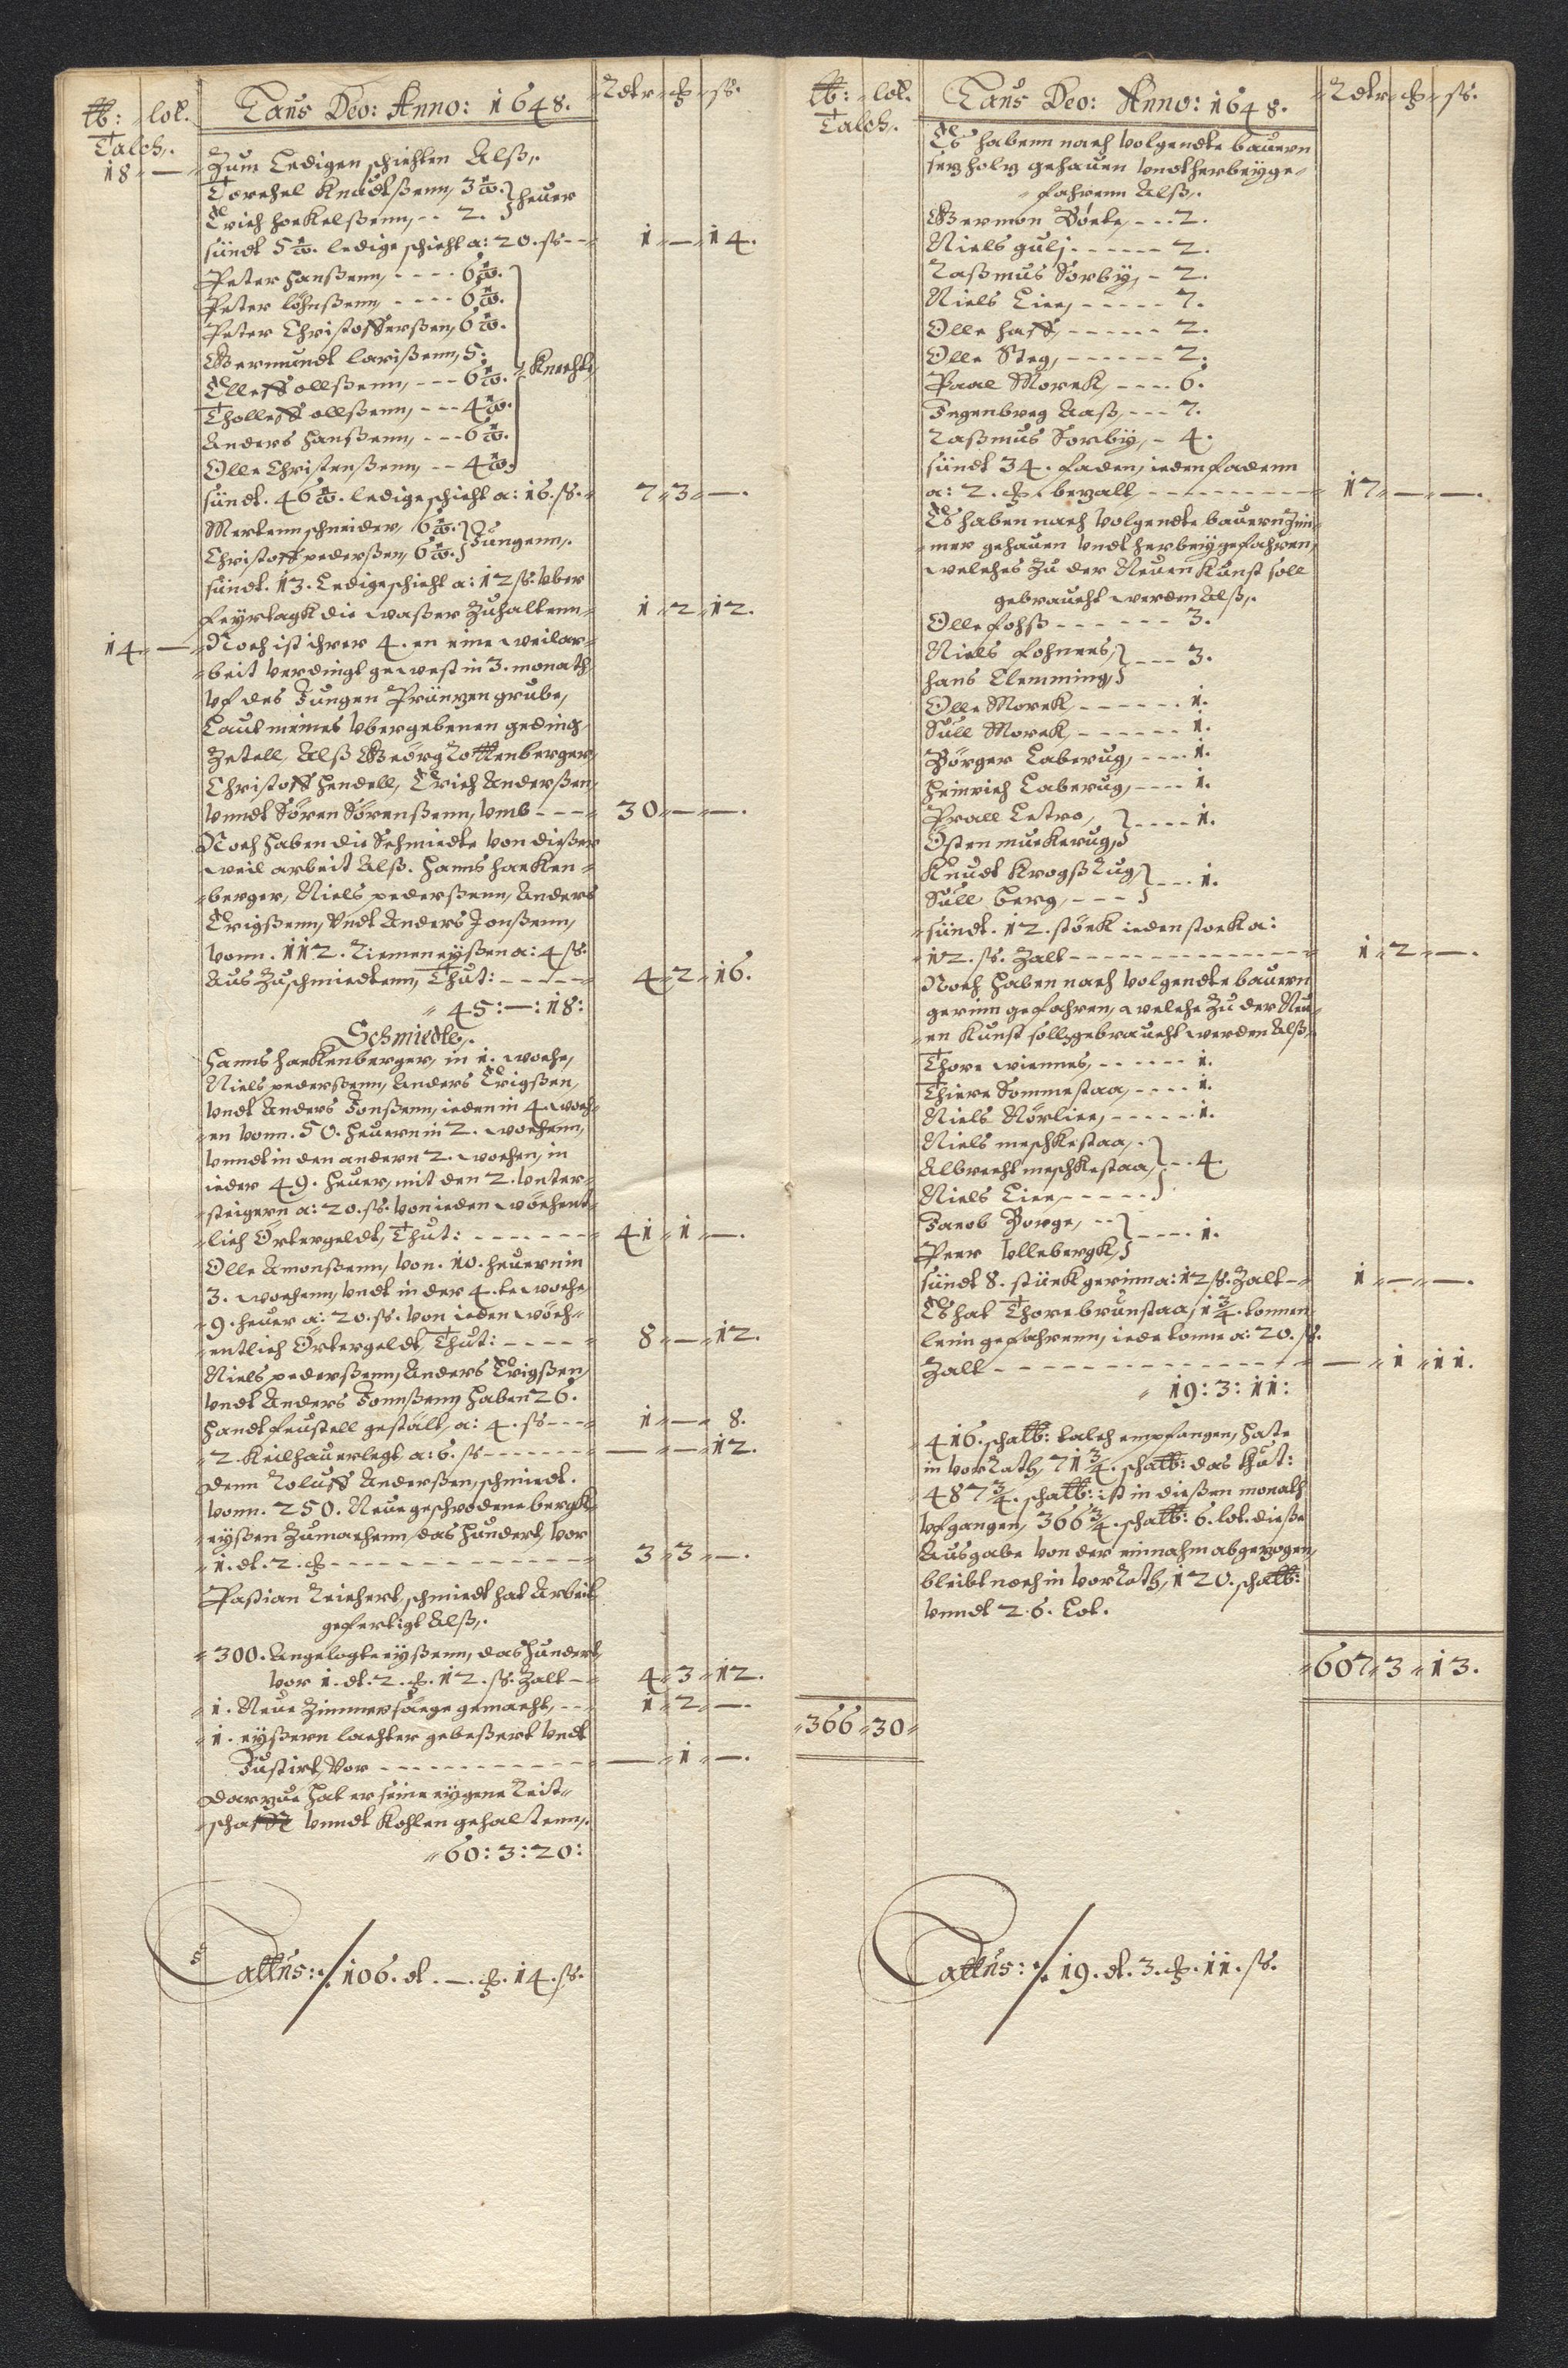 ℔: lot. Laus Deo: Anno: 1648. Rdtr ȹ ß.
Talch,.
18 — Zum Ledigen schichten Alß,.
Torchel Knudtßenn, 3 
Erich hoekelßenn, -- 2. } heuer
sündt 5 . ledige schicht a: 20. ß -- 1 — 14.
Peter Hanßenn, ---- 6 .
Peter löhnßenn, ---- 6 .
Peter Christofferßen, 6 .
Germundt larißenn, 5: } Knechte,
Elleff ollßenn, --- 6 .
Tholleff ollßenn, --- 4 .
Anders Hanßenn, --- 6 .
Olle Christenßenn, -- 4 .
sündt. 46 . ledige schicht a: 16. ß. 7 3 —.
Mertenn schneider, 6 . } Jungenn,.
Christoff pederßen, 6 .
sündt. 13. Ledige schicht a: 12 ß. Vber
feyrtagk die waßer Zuhaltenn 1 2 12.
14 — Noch ist ihrer 4. en eine weilar-
beit verdingt gewest in 3. monath
Vf des Jungen Printzen grube,
Laut meines Vbergebenen geding
Zetell, Alß Geörg Rottenberger,
Christoff Hendell, Erich Anderßen,
Vnndt Sören Sörenßenn, Vmb --- 30 — —.
Noch haben die Schmiedte von dießer
weil arbeit Alß. Hanns hacken-
berger, Niels pederßenn, Anders
Erigßenn, Vndt Anders Jonßenn,
Vonn. 112. Riemen eyßen a: 4 ß.
Aus Zuschmiedtenn, Thut: ---- 4 2 16.
45: —: 18:
Schmiedte,.
Hanns hackenberger, in 1. woche,
Niels pederßenn, Anders Erigßen,
Vndt Anders Jonßenn, ieden in 4 woch-
en vonn. 50. heuern in 2. wochenn,
Vnndt in den andern 2. wochen, in
ieder 49. heuer, mit den 2. Vnter-
steigern a: 20. ß. von ieden wöchent-
lich Örtergeldt, Thut: ------- 41 1 —.
Olle Amonßenn, Von. 10. heuern in
3. wochenn, Vndt in der 4. te woche
9. heuer a: 20. ß. von ieden wöch-
entlich Örtergeldt, Thut: ---- 8 — 12.
Niels pederßenn, Anders Erigßen,
Vndt Anders Jonnßenn haben 26.
Handt feustell gestält, a: 4. ß --- 1 — 8.
2. Keilhauer legt, a: 6. ß ------- — — 12.
Denn Roluff Anderßen, schmiedt.
Vonn. 250. Neue geschrodene bergk-
eyßen Zumachenn, das hundert, vor
1. dt. 2. ȹ ---------------- 3 3 —.
Pastian Reichert, schmiedt hat Arbeit
gefertigt Alß,.
300. Angelogte eyßenn, das hundert,
vor 1. dt. 2. ȹ. 12. ß. Zalt -- 4 3 12.
1. Neue Zimmersäege gemacht, -- 1 2 —.
1. eyßern lachter gebeßert Vndt
Justirt, Vor ------------ — 1 —.
Darzue hat er seine eygene Reit-
schafft Vnndt Kohlen gehaltenn,.
60: 3: 20:
Lattus: ./. 106. dt. —. ȹ. 14. ß.
℔: lot. Laus Deo: Anno: 1648. Rdtr ȹ ß.
Talch,.
Es habenn nach Volgendte bauern
setzholtz gehauen Vndt herbeyge-
fahrenn Alß,.
Germon Börte, --- 2.
Niels gulj ------ 2.
Raßmus Sorby, - 2.
Niels Liee, ----- 7.
Olle haff, ------ 2.
Olle Steg, ------ 2.
Paal Morck, ---- 6.
Ingenbreg Aaß, --- 7.
Raßmus Sorby, - 4.
sündt 34. faden, ieden fadenn
a: 2. ȹ. bezalt, ---------- 17 — —.
Es haben nach Volgendte bauern Zim-
mer gehauen Vndt herbeygefahren,
welches Zu der Neuen Kunst soll
gebraucht werden Alß,.
Olle fohß ------ 3.
Niels fohnees, } --- 3.
Hans Clemming,
Olle Morck, ------ 1.
Sull Morck, ------ 1.
Börger Laberug, ---- 1.
Heinrich Laberug, ---- 1.
Prall Letro, } ---- 1.
Osten muckerug,
Knudt Krogßrug, } --- 1.
Sull berg, ---
sündt. 12. stöck ieden stock a:
12. ß. Zalt -------------- 1 2 —.
Noch haben nach Volgendte bauern
gerinn gefahren, welche Zu der Neu-
en Kunst soll gebraucht werden Alß,.
Thore wiennes, ------ 1.
Thiere Sommestaa, ---- 1.
Niels Nörliee, ----- 1.
Niels meschkestaa, .
Albrecht meschkestaa, } -- 4.
Niels Liee, -----
Jacob Borge, -- } ---- 1.
Peer Vllebergk,
sündt 8. stück gerinn a: 12 ß. Zalt -- 1 — —.
Es hat Thore brunstaa, 1 3/4. tonnen
leim gefahrenn, iede tonne a: 20. ß.
Zalt ------------------ — 1 11.
19: 3: 11:
416. schalb: talch empfangen, hate
in Vorrath, 71 3/4. schalb: das thut:
487 3/4. schalb: ist in dießen monath
Vfgangen, 366 3/4. schalb: 6. lot. dieße
Ausgabe von der einnahm abgezogen,
bleibt noch in Vorrath, 120. schalb:
Vnndt 26. Lot.
607 3 13.
366 30
Lattus: ./. 19. dt. 3. ȹ. 11. ß.